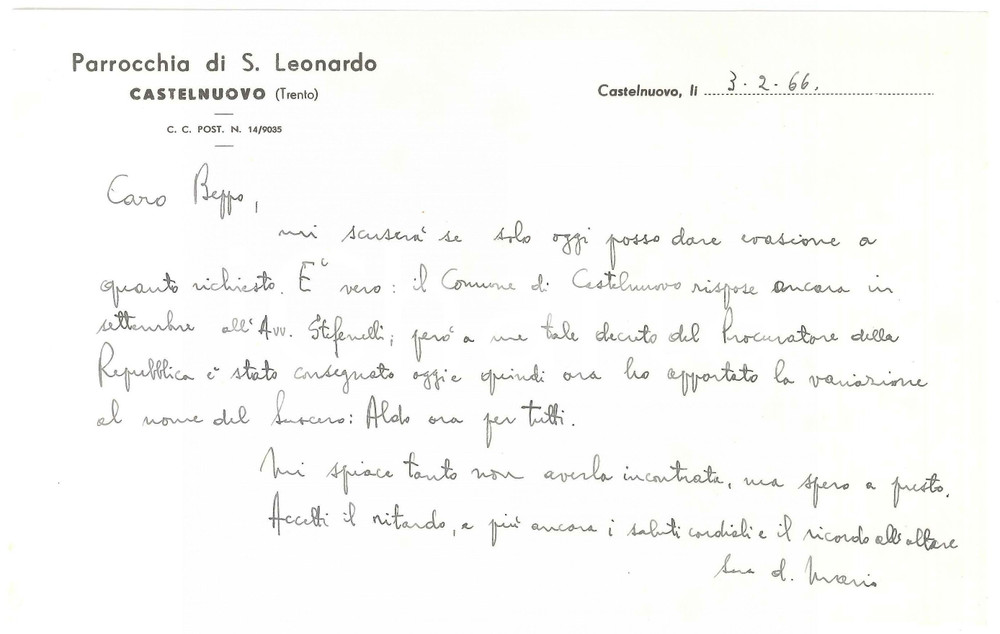 Parrocchia di S. Leonardo
CASTELNUOVO (Trento)
C. C. POST. N. 14/9035
Castelnuovo, li 3. 2. 66.
Caro Beppo,
mi scuserà se solo oggi posso dare evasione a
quanto richiesto. E' vero: il Comune di Castelnuovo rispose ancora in
settembre all'Avv. Stefenelli; però a me tale decreto del Procuratore della
Repubblica è stato consegnato oggi e quindi ora ho apportato la variazione
al nome del Suocero: Aldo ora per tutti.
Mi spiace tanto non averla incontrata, ma spero a presto.
Accetti il ritardo, e più ancora i saluti cordiali e il ricordo all'altare
d. Mario